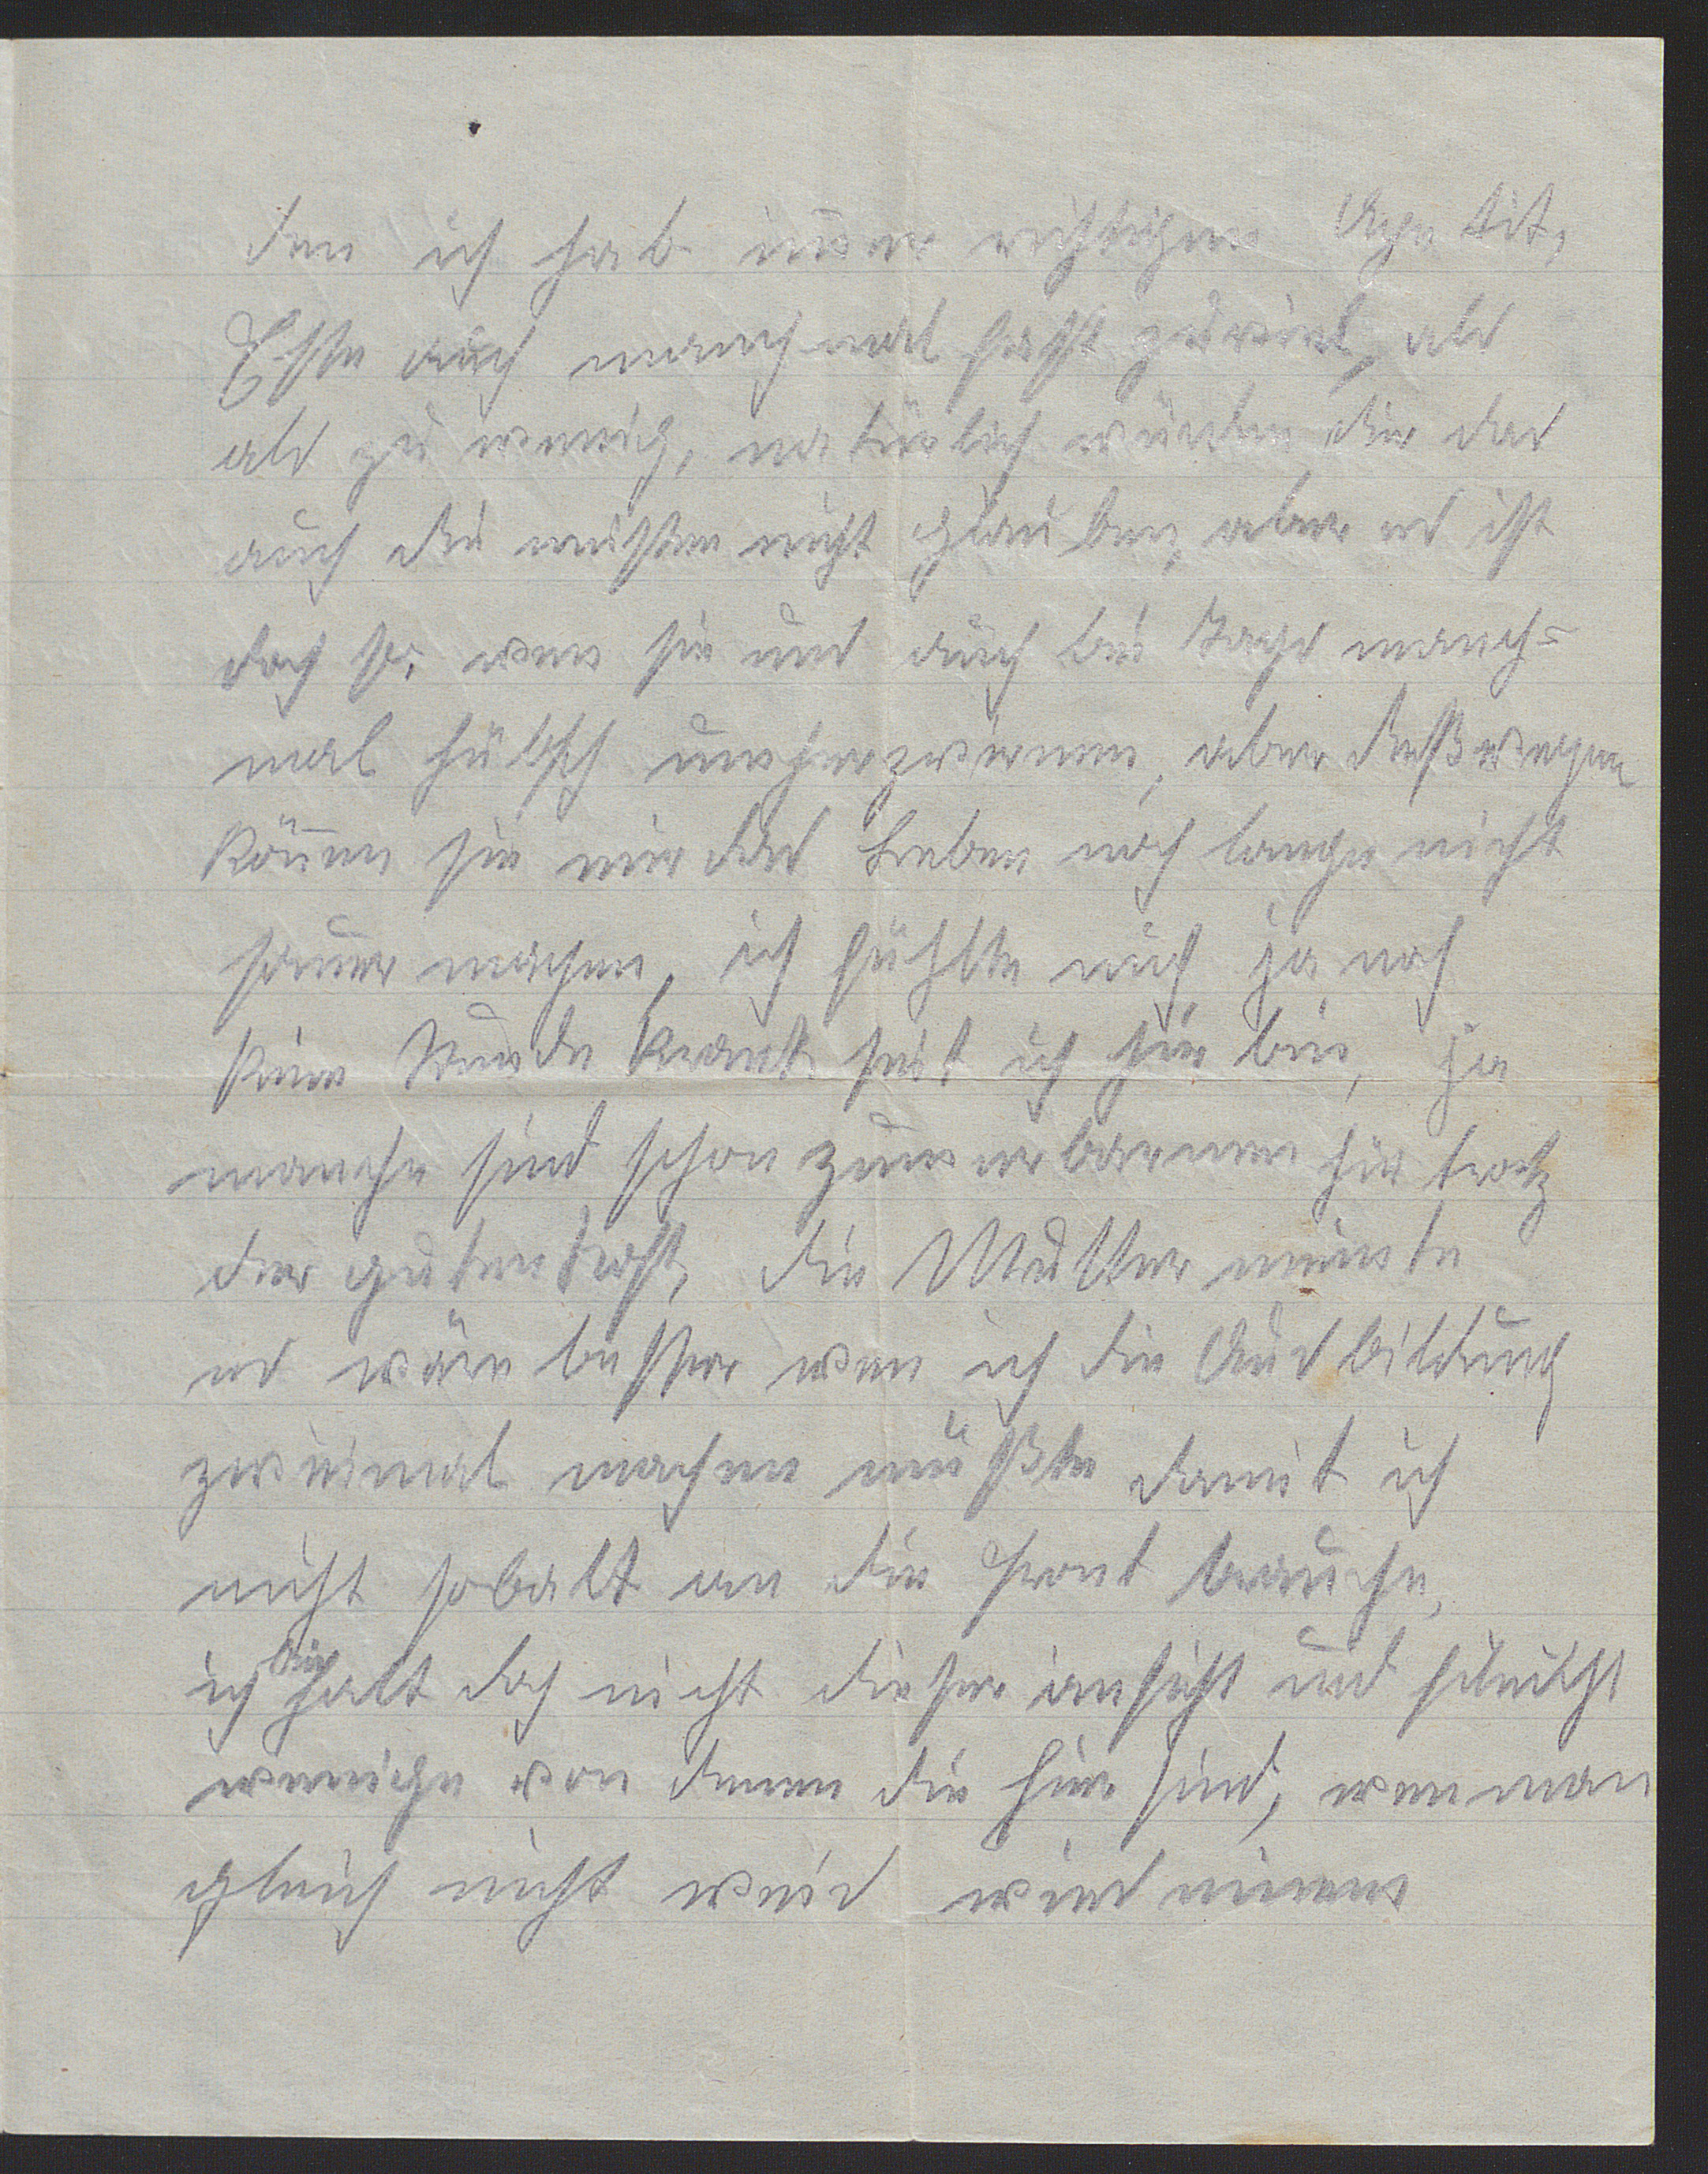 den ich hab im̅er richtigen Apetit,
Esse auch manchmal fast zuviel, als
als zu wenig, natürlich würden dir das
auch die meisten nicht glauben, aber es ist
doch so, wen sie uns auch bei Tags manch=
mal hübsch umherzwirnen, aber deßwegen
kön̅en sie mir das Leben noch lange nicht
sauer machen, ich fühlte mich ja noch
keine Stunde krank seit ich hir bin, ja
manche sind schon zum erbarmen hir trotz
der guten Kost, die Mutter meinte
es wäre besser wen ich die Ausbildung
zweimal machen müßte damit ich
nicht sobalt an die Front brauche,
ich bin halt doch nicht dieser ansicht und
wenige von denen die hier sind, wen man
gleich nicht weis wies einem